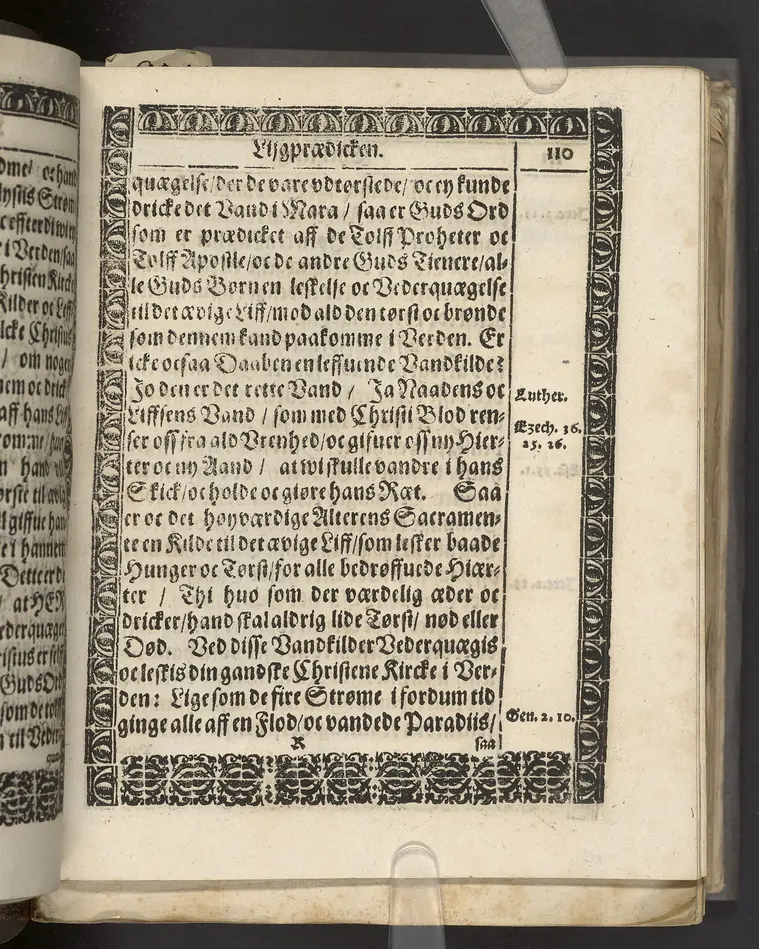 Lijgprædicken.
110
quægelse/der de vare vdtørstede/ oc ey kunde
dricke det Vand i Mara / saa er Guds Ord
som er prædicket aff de Tolff Propheter oc
Tolff Apostle/oc de andre Guds Tienere/al-
le Guds Børn en leskelse oc Vederquægelse
til det ævige Liff/mod ald den tørst oc brønde
som dennem kand paakomme i Verden. Er
icke ocsaa Daaben en leffuende Vandkilde?
Jo den er det rette Vand / Ja Naadens oc
Liffsens Vand / som med Christi Blod ren-
ser oss fra ald Vrenhed/oc gifuer oss ny Hier-
ter oc ny Aand / at wi skulle vandre i hans
Skick/oc holde oc giøre hans Ræt. Saa
er oc det høyværdige Alterens Sacramen-
te en Kilde til det ævige Liff/som lesker baade
Hunger oc Tørst/for alle bedrøffuede Hiær-
ter / Thi huo som der værdelig æder oc
dricker/hand skal aldrig lide Tørst/ nød eller
Død. Ved disse Vandkilder Vederquægis
oc leskis din gandske Christene Kircke i Ver-
den: Lige som de fire Strøme i fordum tid
ginge alle aff en Flod/oc vandede Paradiis/
X
saa
Luther.
Ezech. 36.
25. 26.
Gen. 2. 10.
dme/ oc hand
i Verden/saa
Christen Kircke
Kilder oc Leff
lcke Christus
/ om nogen
nem oc drick
aff hans Liff
n hand
ørste til
l giffue han
e i hannem
Dette er
/ at HER
Vederquæg
Christus er self
Guds Ord
som de tolff
n til Veder